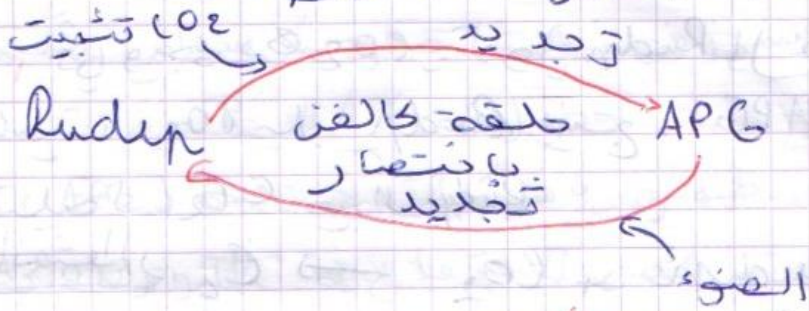 تثبيت CO2
تجديد
Rudip حلقة كالفن APG
باختصار
تجديد
الضوء